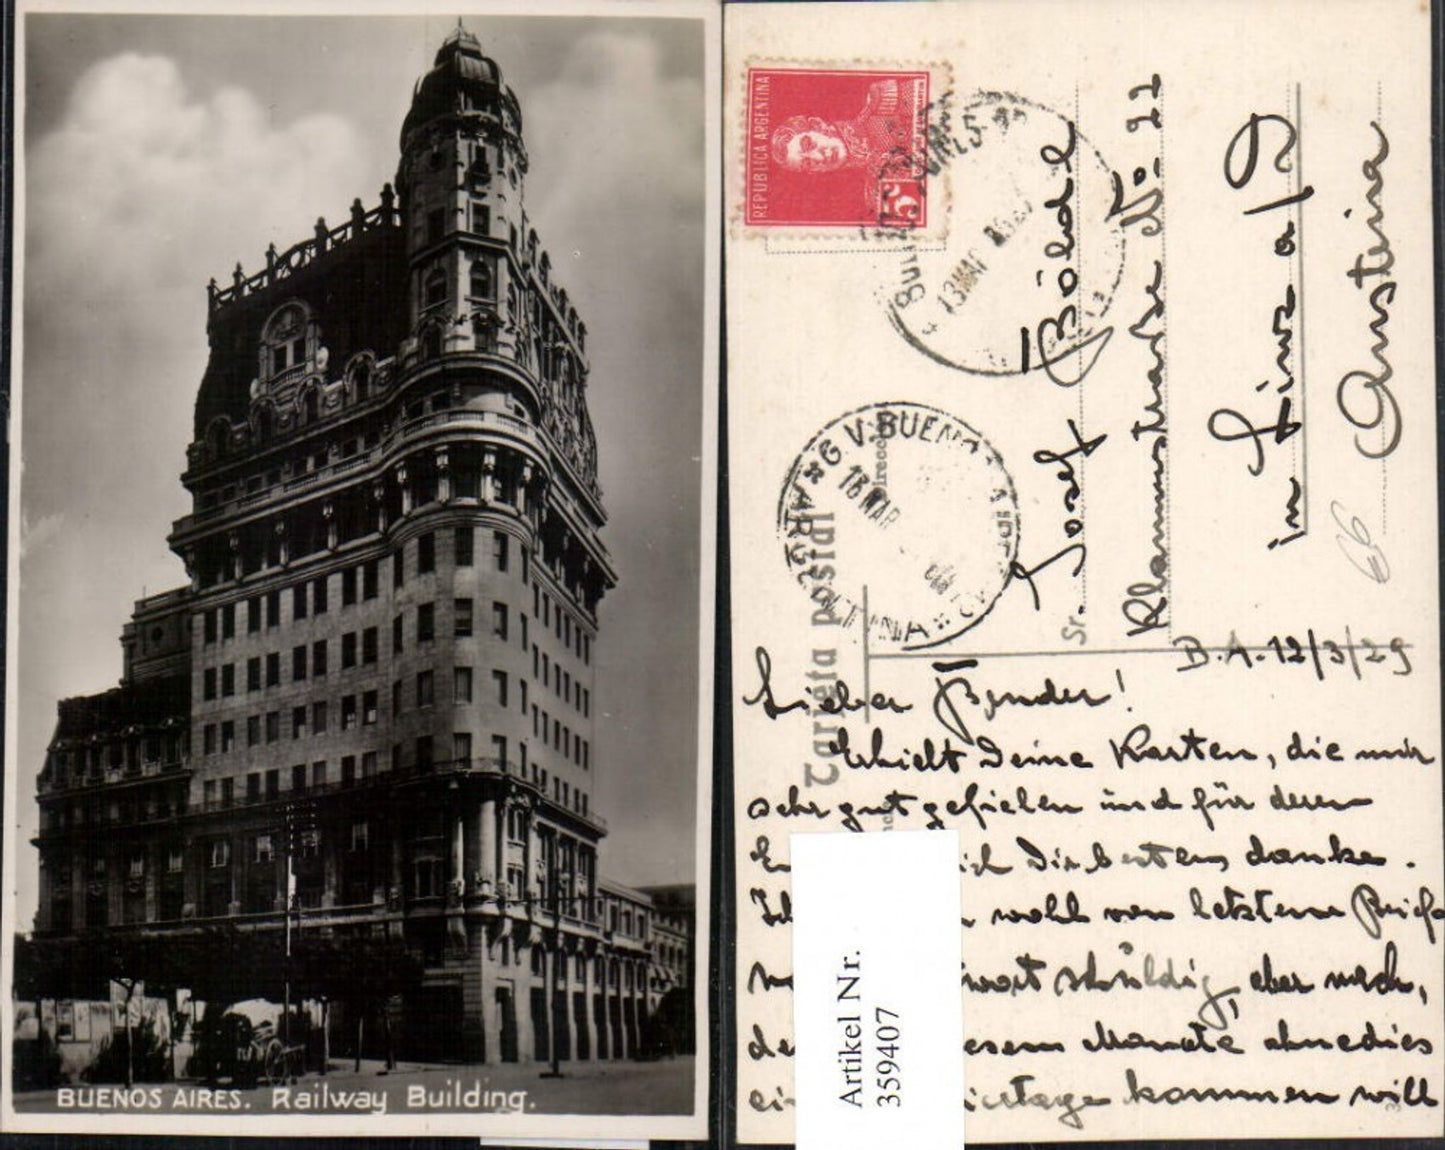 BUENOS AIRES. Railway Building.
REPUBLICA ARGENTINA
5c
BUENOS AIRES
13 MAR
G V. BUENOS AIRES
13 MAR
ARGENTINA
Tarjeta postal
Dirección
Sr. Josef
in Linz a/D
Austria
66
B.A. 12/3/29
Lieber Bruder!
Erhielt Deine Karten, die mir
sehr gut gefielen und für deren
ich Dir bestens danke.
wohl von letztem Briefe
wort schuldig, aber nach,
esem Monate ohnedies
kommen will
Artikel Nr.
359407